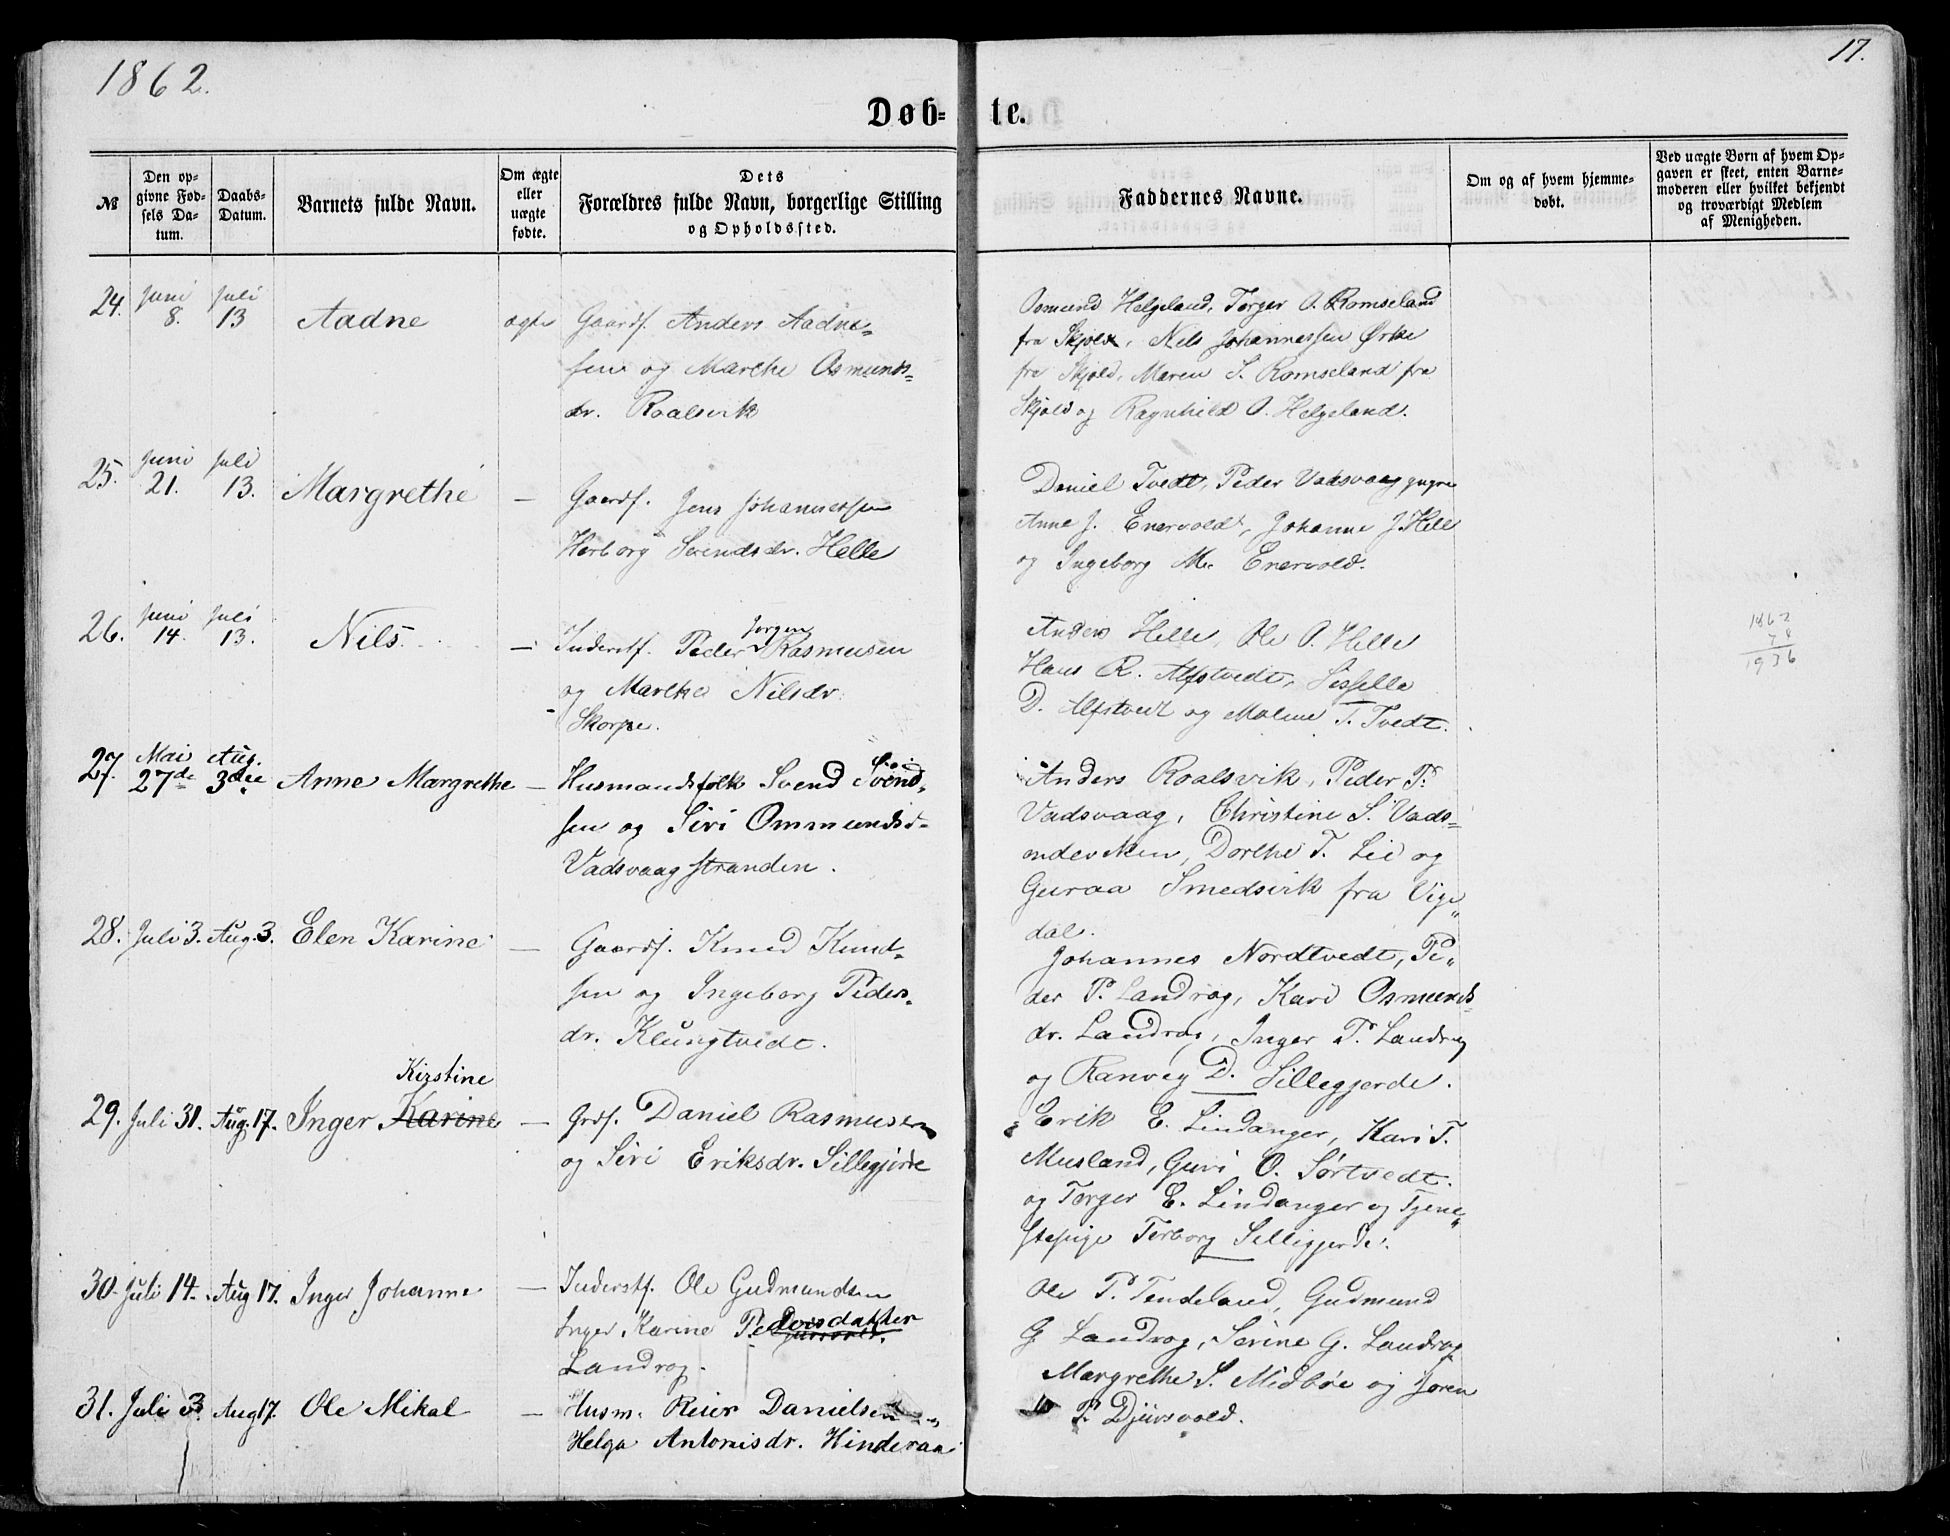 1862.
17.
Døb- te.
№
Den opgivne Fødsels Datum.
Daabs-Datum.
Barnets fulde Navn.
Om ægte eller uægte fødte.
Dets Forældres fulde Navn, borgerlige Stilling og Opholdssted.
Faddernes Navne.
Om og af hvem hjemmedøbt.
Ved uægte Børn af hvem Opgaven er skeet, enten Barnemoderen eller hvilket bekjendt og troværdigt Medlem af Menigheden.
24. Juni 8. Juli 13 Aadne ægte Gaardf. Anders Aadne-
sen og Marthe Osmunds-
dr. Roalsvik
Osmund Helgeland, Torger O. Romseland
fra Skjold, Nels Johannessen Ørke
fra Skjold, Maren S. Romseland fra
Skjold og Ragnhild O. Helgeland.
25. Juni 21. Juli 13. Margrethe — Gaardf. Jens Johannessen
Herborg Svendsdr. Helle
Daniel Tvedt, Peder Vadsvaag
Anne J. Enervold, Johanne J. Helle
og Ingeborg M. Enervold.
26. Juni 14. Juli 13. Nils — Inderstf. Peder Jørgen Rasmusen
og Marthe Nilsdr.
Skorpe.
Anders Helle, Ole O. Helle
Hans R. Alfstvedt, Sissella
D. Alfstvedt og Malene T. Tvedt.
1862
74
1936
27. Mai 27de Aug. 3die Anne Margrethe — Husmandsfolk Svend Svend-
sen og Siri Ommundsd-
Vadsvaagstranden.
Anders Roalsvik, Peder P.
Vadsvaag, Christine S. Vads-
Dorthe T. Lie og
Guroa Smedsvik fra Vige-
dal.
28. Juli 3. Aug. 3. Elen Karine — Gaardf. Knud Knud-
sen og Ingeborg Peders-
dr. Klungtvedt.
Johannes Nordtvedt, Pe-
der P. Landrog, Kari Osmunds-
dr. Landrog, Inger P. Landrog
og Ranveg D. Sillegjerde.
29. Juli 31. Aug. 17. Inger Karine Kirstine — Grdf. Daniel Rasmusen
og Siri Eriksdr. Sillegjerde
Erik E. Lindanger, Kari T.
Musland, Guri O. Sørtvedt.
og Torger E. Lindanger og Tjene-
stepige Torborg Sillegjerde.
30. Juli 14. Aug 17. Inger Johanne — Inderstf. Ole Gudmundsen
Inger Karine Pedersdatter
Landrog.
Ole P. Tendeland, Gudmund
G Landrog, Serine G. Landrog
Margrethe S. Midbøe og Joren
P. Djursvold.
31. Juli 3. Aug 17. Ole Mikal — Husm. Reier Danielsen
Helga Antonisdr. Hinderaa